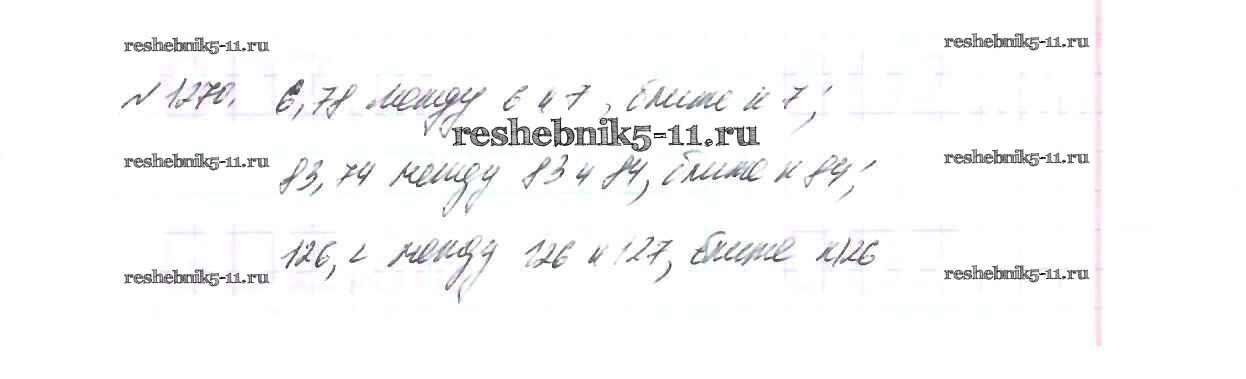 reshebnik5-11.ru
reshebnik5-11.ru
№ 1270. 6,78 между 6 и 7, ближе к 7;
reshebnik5-11.ru
reshebnik5-11.ru
reshebnik5-11.ru
83,74 между 83 и 84, ближе к 84;
126,2 между 126 и 127, ближе к 126
reshebnik5-11.ru
reshebnik5-11.ru